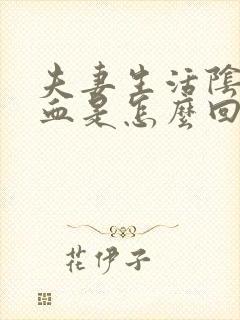 夫妻生活陰
血是怎麼回
花伊子